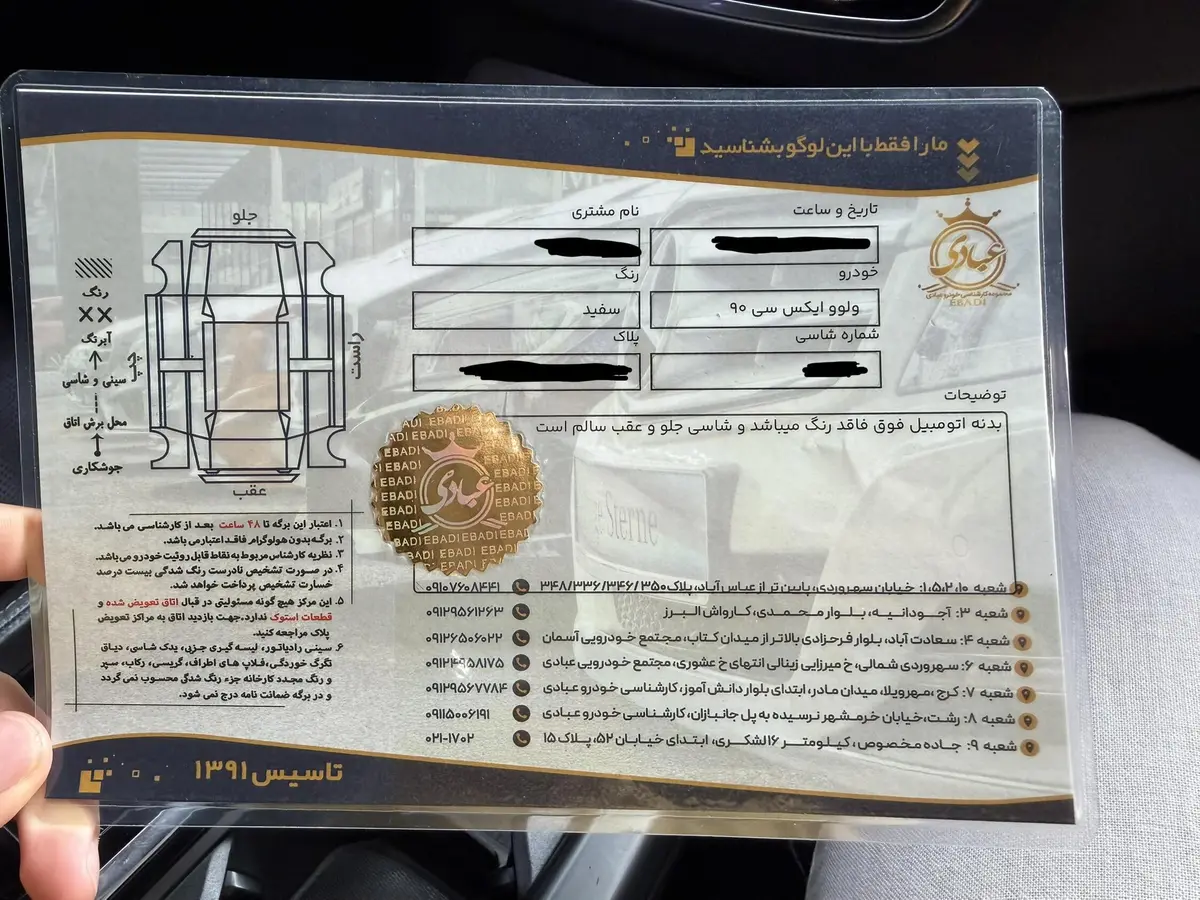 ما را فقط با این لوگو بشناسید
تاریخ و ساعت
نام مشتری
خودرو
رنگ
ولوو ایکس سی ۹۰
سفید
شماره شاسی
پلاک
توضیحات
بدنه اتومبیل فوق فاقد رنگ میباشد و شاسی جلو و عقب سالم است
عبادی
مجموعه کارشناسی خودرو عبادی
EBADI
جلو
راست
چپ
عقب
رنگ
XX
آبرنگ
سینی و شاسی
محل برش اتاق
جوشکاری
EBADI EBADI
عبادی
Sterne
۱. اعتبار این برگه تا ۴۸ ساعت بعد از کارشناسی می باشد.
۲. برگه بدون هولوگرام فاقد اعتبار می باشد.
۳. نظریه کارشناس مربوط به نقاط قابل روئیت خودرو می باشد.
۴. در صورت تشخیص نادرست رنگ شدگی بیست درصد
خسارت تشخیص پرداخت خواهد شد.
۵. این مرکز هیچ گونه مسئولیتی در قبال اتاق تعویض شده و
قطعات استوک ندارد.جهت بازدید اتاق به مراکز تعویض
پلاک مراجعه کنید.
۶. سینی رادیاتور، لیسه گیری جزیی، یدک شاسی، دیاق
تگرگ خوردگی،فلاپ های اطراف، گریسی، رکاب، سپر
و رنگ مجدد کارخانه جزء رنگ شدگی محسوب نمی گردد
و در برگه ضمانت نامه درج نمی شود.
شعبه ۱،۵،۲،۱۰: خیابان سهروردی، پایین تر از عباس آباد، پلاک ۳۴۸/۳۳۶/۳۴۶/۳۵۰ ۰۹۱۰۷۶۰۸۴۴۱
شعبه ۳: آجودانیه، بلوار محمدی، کارواش البرز ۰۹۱۲۹۵۶۱۲۶۳
شعبه ۴: سعادت آباد، بلوار فرحزادی بالاتر از میدان کتاب، مجتمع خودرویی آسمان ۰۹۱۲۶۵۰۶۰۲۲
شعبه ۶: سهروردی شمالی، خ میرزایی زینالی انتهای خ عشوری، مجتمع خودرویی عبادی ۰۹۱۲۴۹۵۸۱۷۵
شعبه ۷: کرج ،مهرویلا، میدان مادر، ابتدای بلوار دانش آموز، کارشناسی خودرو عبادی ۰۹۱۲۹۵۶۷۷۸۴
شعبه ۸: رشت،خیابان خرمشهر نرسیده به پل جانبازان، کارشناسی خودرو عبادی ۰۹۱۱۵۰۰۶۱۹۱
شعبه ۹: جاده مخصوص، کیلومتر ۱۶ لشکری، ابتدای خیابان ۵۲، پلاک ۱۵ ۰۲۱-۱۷۰۲
تاسیس ۱۳۹۱